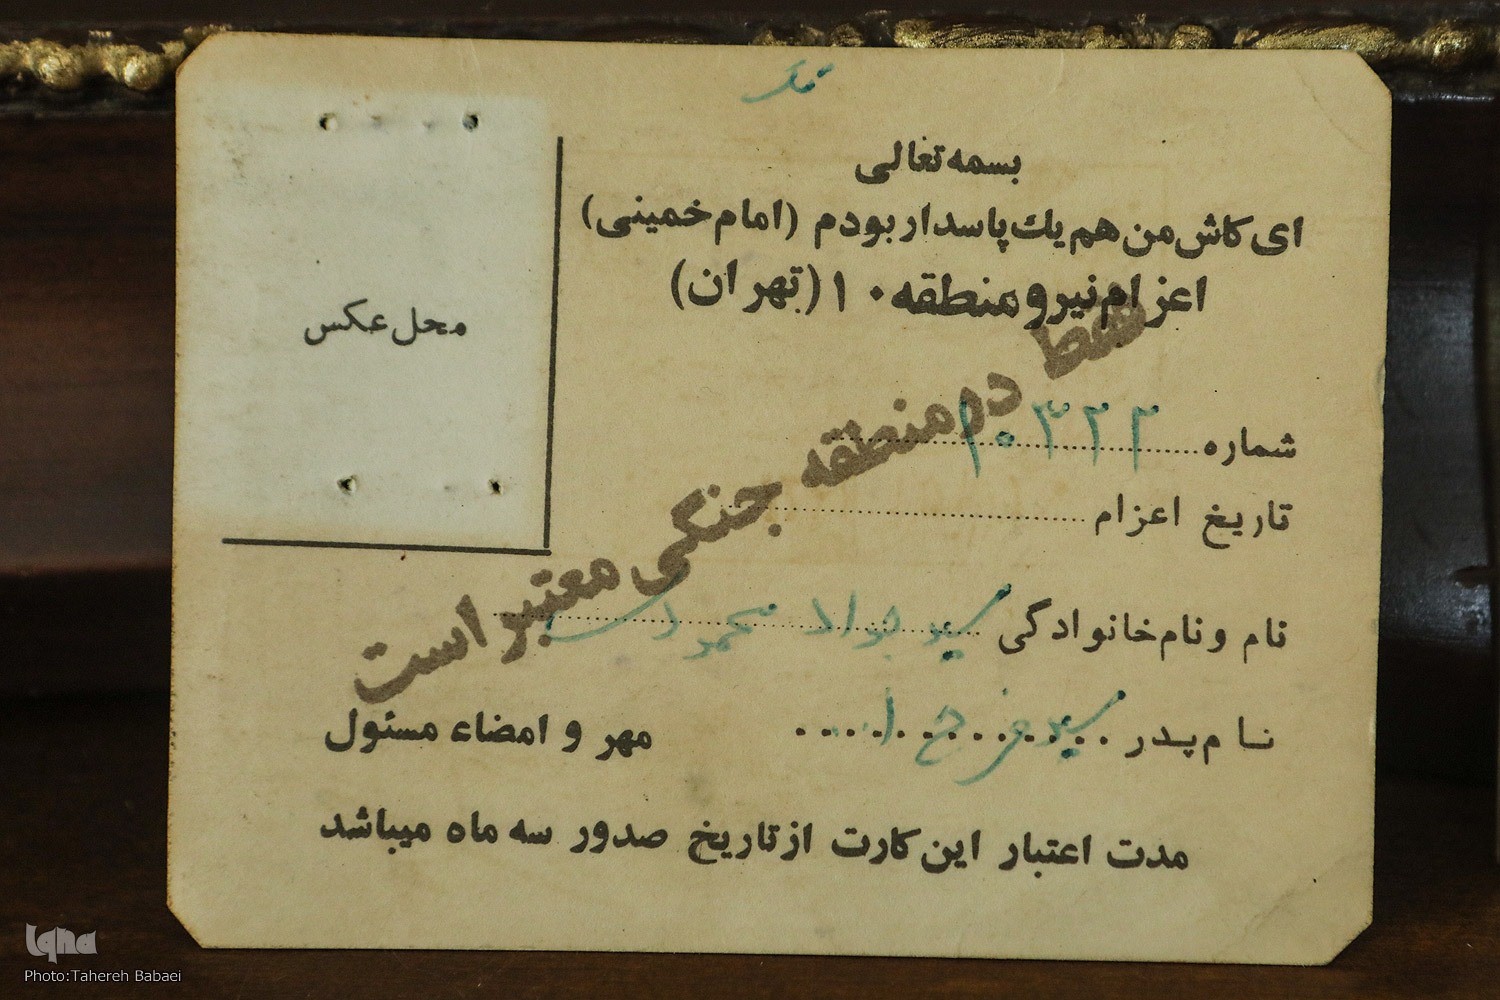 بسمه تعالی
ای کاش من هم یك پاسدار بودم (امام خمینی)
اعزام نیرو منطقه ۱۰ (تهران)
محل عکس
شماره ۱۰۳۲۲
تاریخ اعزام
نام و نام خانوادگی سید جواد محمودی
نام پدر سید فرج ا...
مهر و امضاء مسئول
فقط در منطقه جنگی معتبر است
مدت اعتبار این کارت از تاریخ صدور سه ماه میباشد
Iqna
Photo:Tahereh Babaei